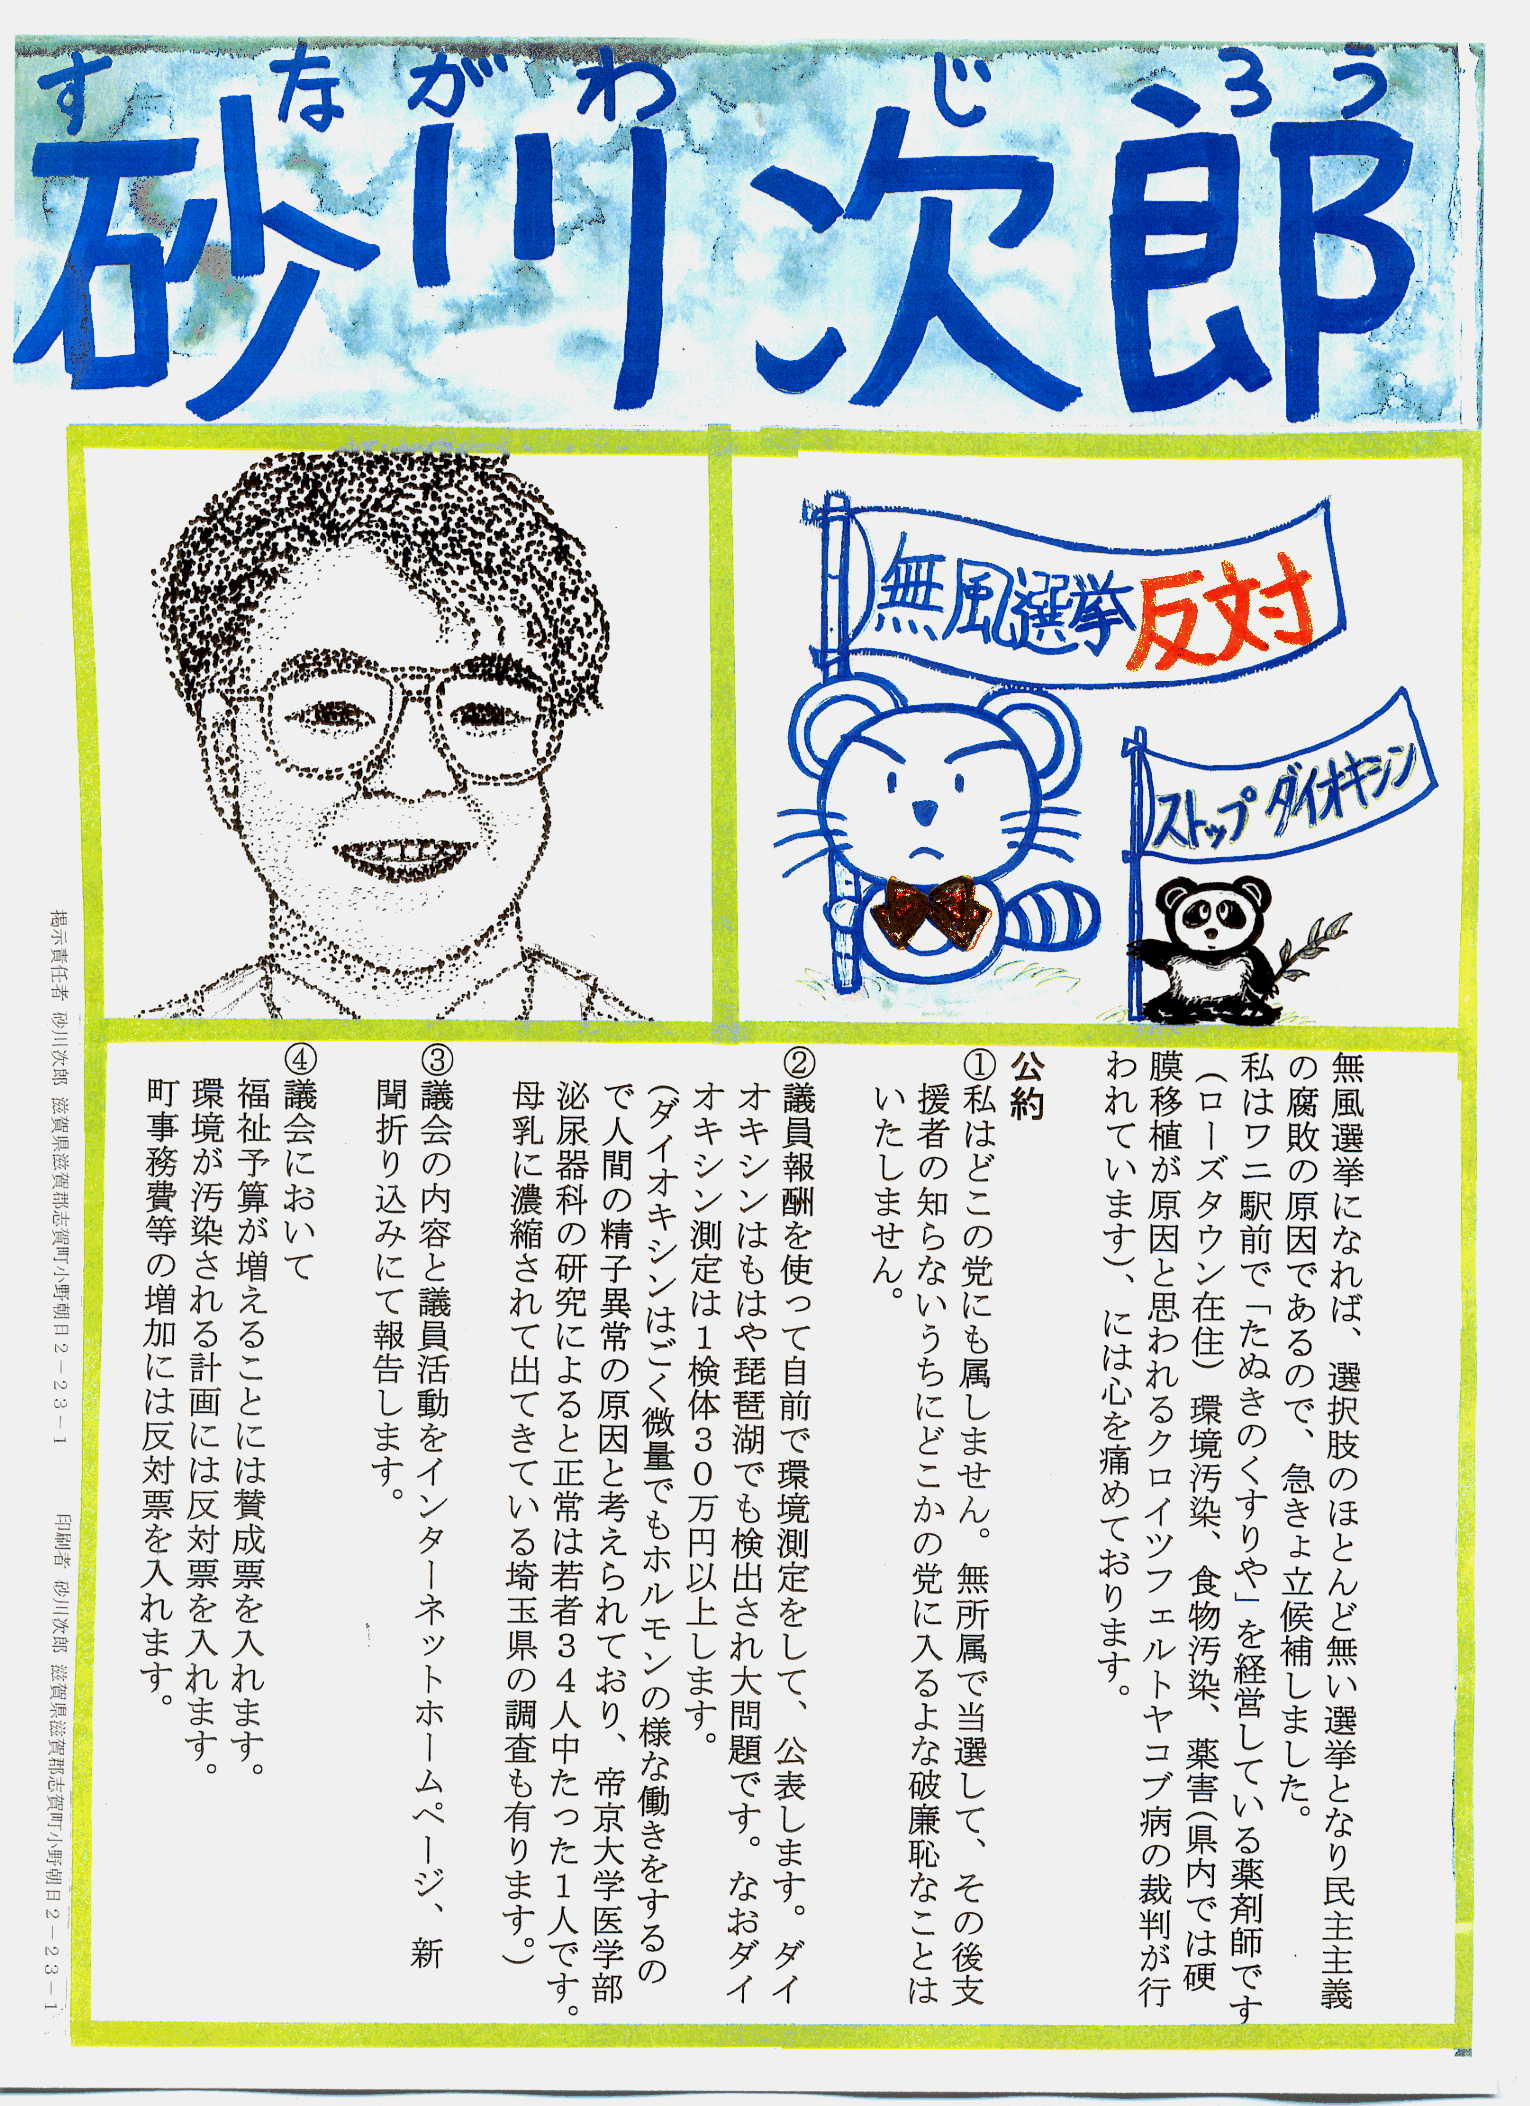 すながわ じろう
砂川次郎
無風選挙反対
ストップ ダイオキシン
無風選挙になれば、選択肢のほとんど無い選挙となり民主主義
の腐敗の原因であるので、急きょ立候補しました。
私はワニ駅前で「たぬきのくすりや」を経営している薬剤師です
(ローズタウン在住)環境汚染、食物汚染、薬害(県内では硬
膜移植が原因と思われるクロイツフェルトヤコブ病の裁判が行
われています)、には心を痛めております。
公約
①私はどこの党にも属しません。無所属で当選して、その後支
援者の知らないうちにどこかの党に入るよな破廉恥なことは
いたしません。
②議員報酬を使って自前で環境測定をして、公表します。ダイ
オキシンはもはや琵琶湖でも検出され大問題です。なおダイ
オキシン測定は1検体30万円以上します。
(ダイオキシンはごく微量でもホルモンの様な働きをするの
で人間の精子異常の原因と考えられており、帝京大学医学部
泌尿器科の研究によると正常は若者34人中たった1人です。
母乳に濃縮されて出てきている埼玉県の調査も有ります。)
③議会の内容と議員活動をインターネットホームページ、新
聞折り込みにて報告します。
④議会において
福祉予算が増えることには賛成票を入れます。
環境が汚染される計画には反対票を入れます。
町事務費等の増加には反対票を入れます。
掲示責任者 砂川次郎 滋賀県滋賀郡志賀町小野朝日2-23-1
印刷者 砂川次郎 滋賀県滋賀郡志賀町小野朝日2-23-1